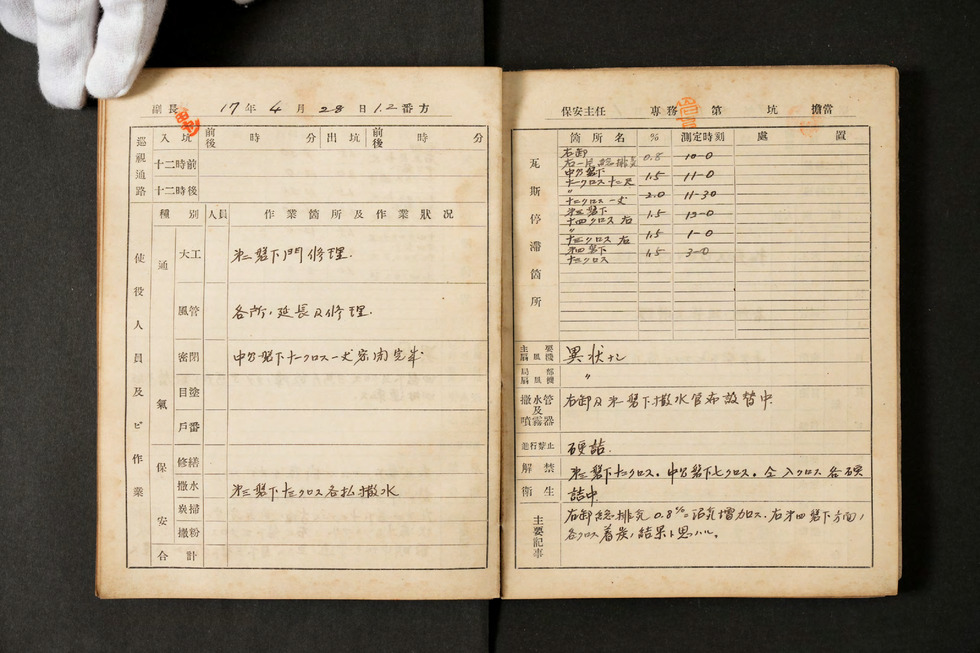 副長 17年 4月 28日 1.2番方
巡視通路 入坑 前後 時 分 出坑 前後 時 分
十二時前
十二時後
使役人員及ビ作業
種別 人員 作業箇所及作業狀况
通氣
大工 㐧二盤下門修理.
風管 各所ノ延長及修理.
密閉 中学盤下十一クロス一丈密閉完
目塗
戶番
保安
修繕
撒水 㐧三盤下十三クロス各払撒水
炭掃
撒粉
合計
保安主任 専務 第 坑 擔當
瓦斯停滯箇所
箇所名 % 測定時刻 處置
右卸
右一片總排気 0.8 10-0
盤下
十一クロス 1.5 11-0
〃
クロス一丈 2.0 11-30
㐧三盤下
十四クロス右 1.5 12-0
〃
十三クロス右 1.5 1-0
㐧四盤下
クロス 1.5 3-0
主要扇風機 異状ナシ
局部扇風機 〃
撒水管及噴霧器 右卸及㐧 盤下撒水管布設替中.
進行禁止 硬詰.
解禁 㐧三盤下 クロス. 盤下七クロス. 仝入クロス各硬
衛生 詰中.
主要記事
右卸總排気0.8%ニ沼気増加ス. 右㐧四盤下方面ノ
各クロス着炭ノ結果ト思ハル.